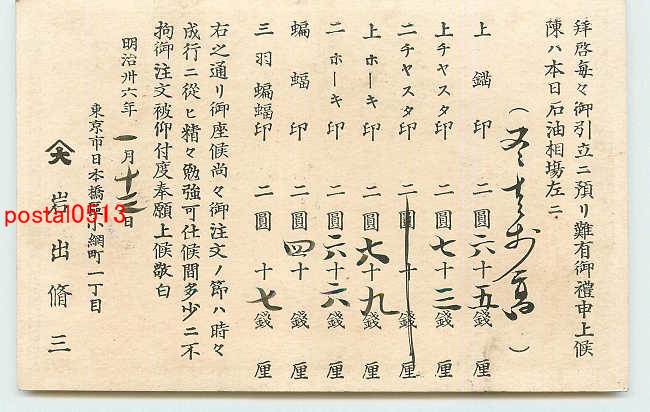 拝啓毎々御引立ニ預リ難有御禮申上候
陳ハ本日石油相場左ニ
上錨印 二圓六十五錢厘
上チヤスタ印 二圓七十三錢厘
二チヤスタ印 二圓十錢厘
上ホーキ印 二圓六十九錢厘
二ホーキ印 二圓六十六錢厘
蝙蝠印 二圓四十錢厘
三羽蝙蝠印 二圓十七錢厘
右之通リ御座候尚々御注文ノ節ハ時々
成行ニ從ヒ精々勉強可仕候間多少ニ不
拘御注文被仰付度奉願上候敬白
明治卅六年一月十二日
東京市日本橋區小網町一丁目
大 岩出脩三
postal0513